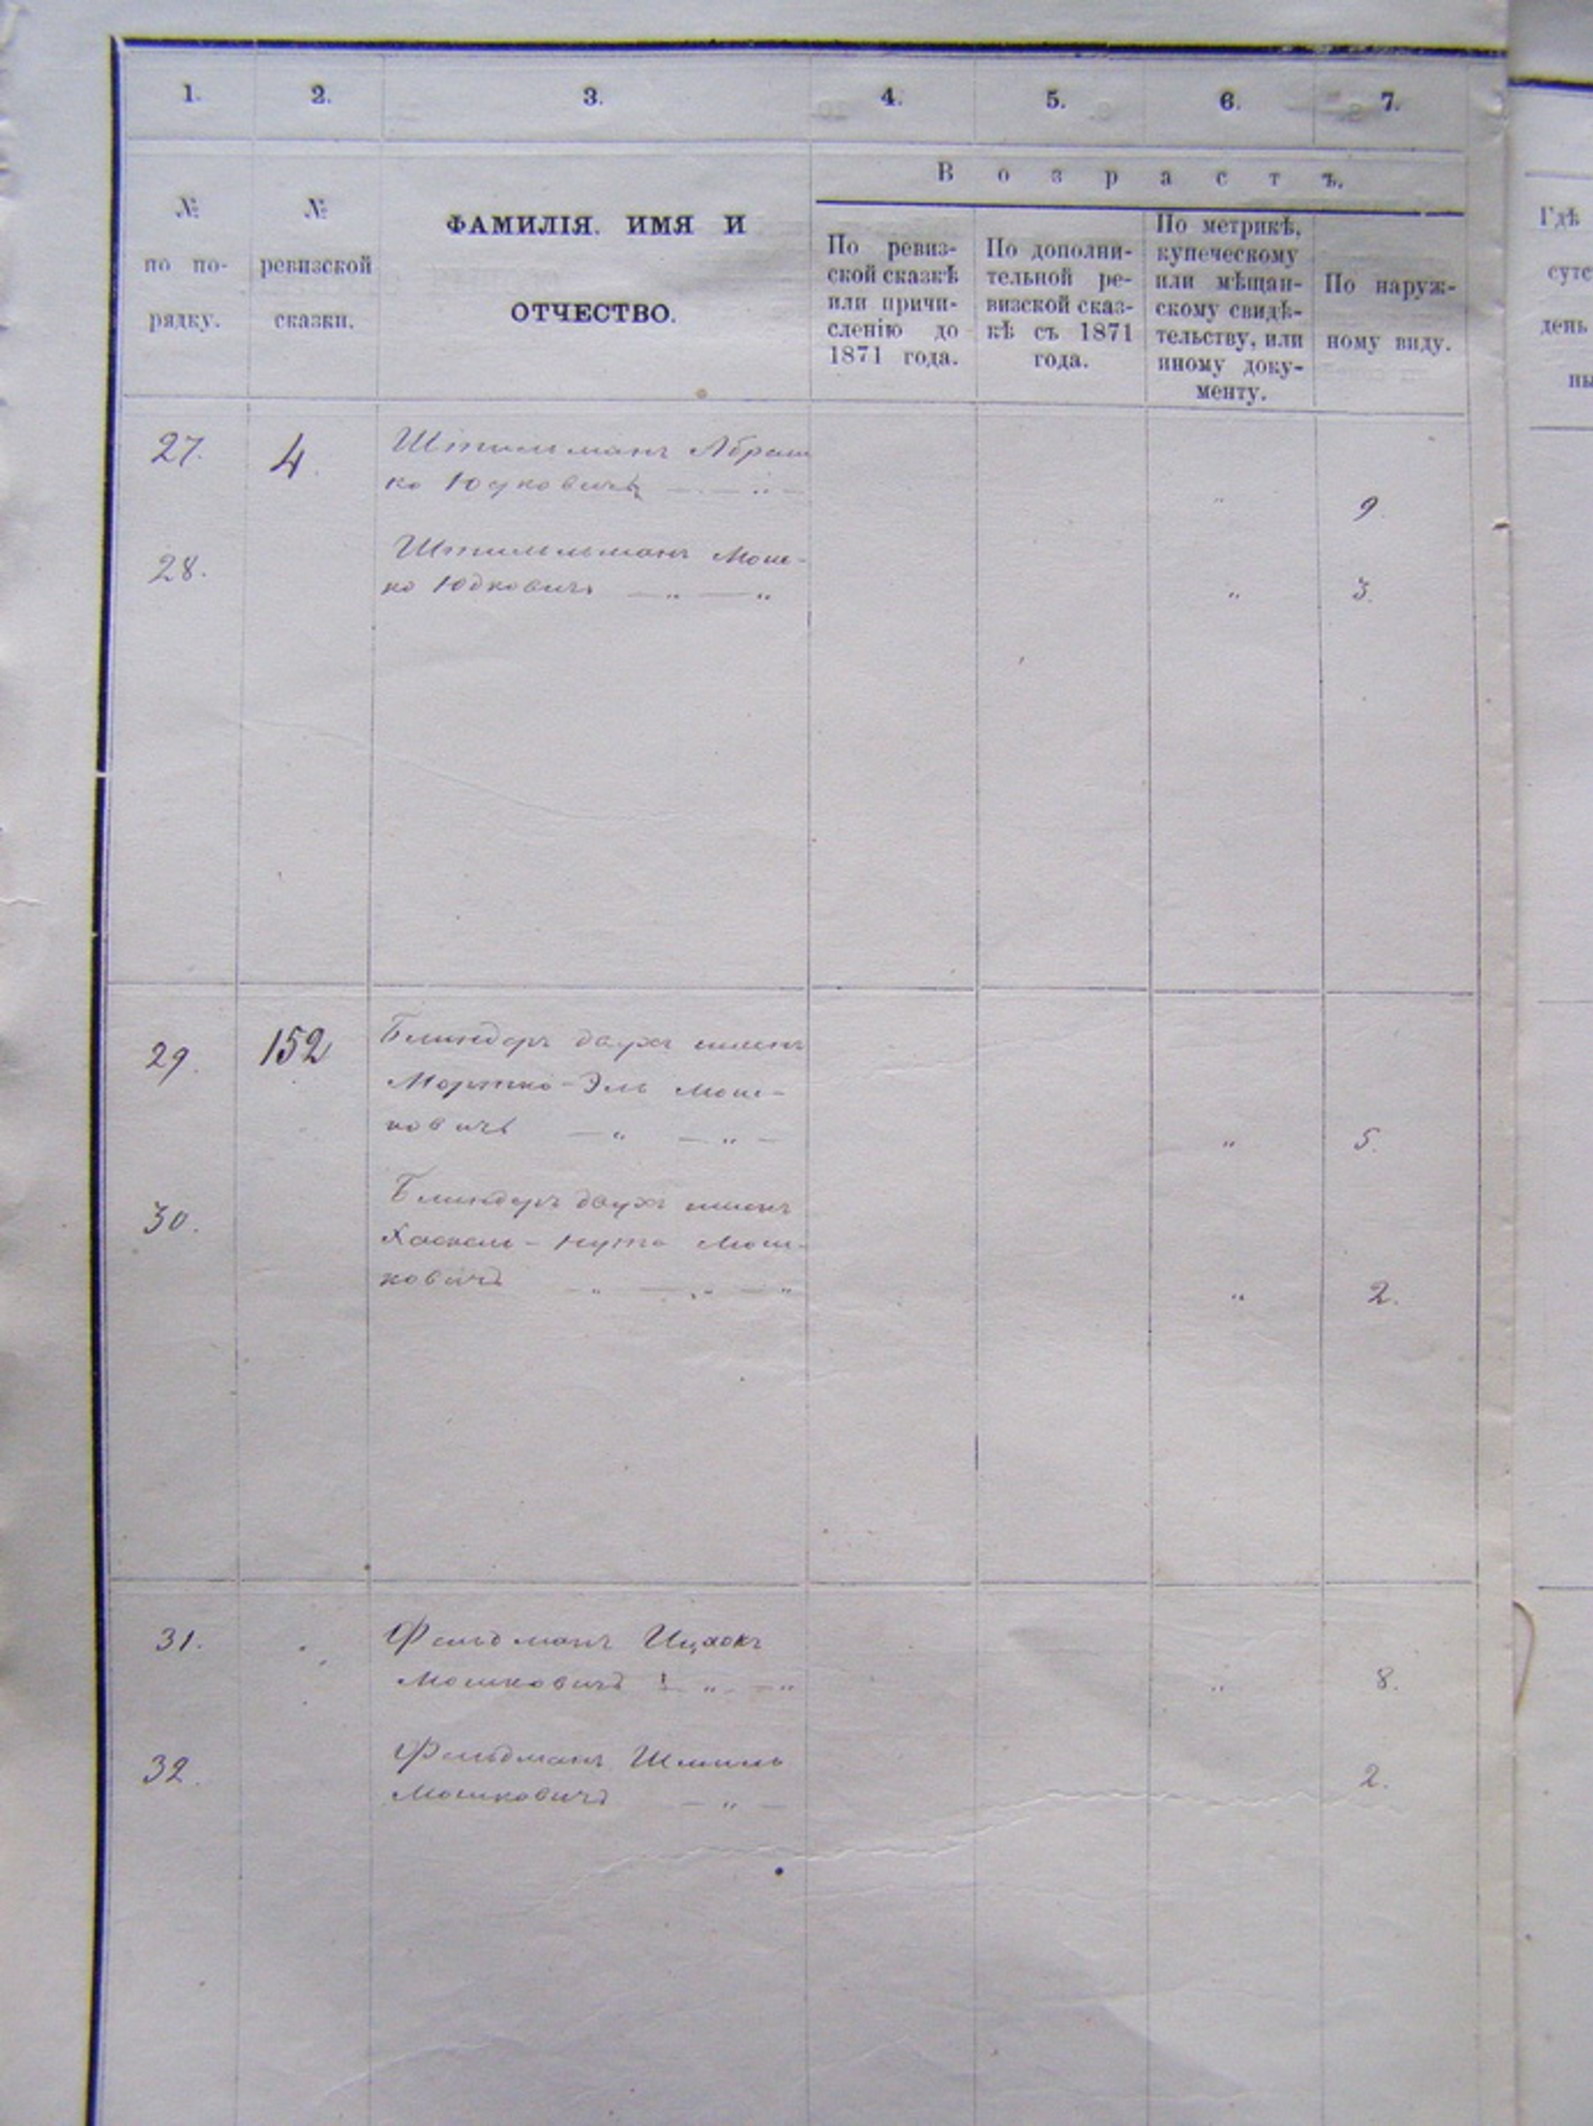 1. 2. 3. 4. 5. 6. 7.
№ по по- рядку.
№ ревизской сказки.
ФАМИЛІЯ. ИМЯ И
ОТЧЕСТВО.
Возрастъ.
По ревиз-
ской сказкѣ
или причи-
сленію до
1871 года.
По дополни-
тельной ре-
визской сказ-
кѣ съ 1871
года.
По метрикѣ,
купеческому
или мѣщан-
скому свидѣ-
тельству, или
иному доку-
менту.
По наруж-
ному виду.
Гдѣ
сутс
день
ны
27. 4. Штильманъ Абраш
ко Юдковичъ — „ — „ 9.
28. Штильманъ Мош-
ко Юдковичъ — „ — „ „ 3.
29. 152 Блиндеръ двухъ именъ
Мортко-Эль Мош-
ковичъ — „ — „ — „ 5.
30. Блиндеръ двухъ именъ
Хаскель - Нута Мош-
ковичъ — „ — „ — „ „ 2.
31. Фельдманъ Ицхокъ
Мошковичъ — „ — „ „ 8.
32. Фельдманъ Шмиль
Мошковичъ — „ — 2.